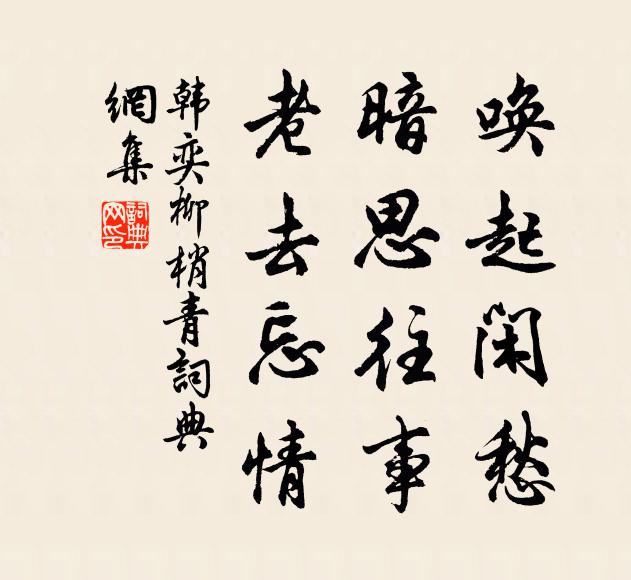 唤起闲愁
暗思往事
老去忘情
韩奕柳梢青词典
網集
詞典
网印